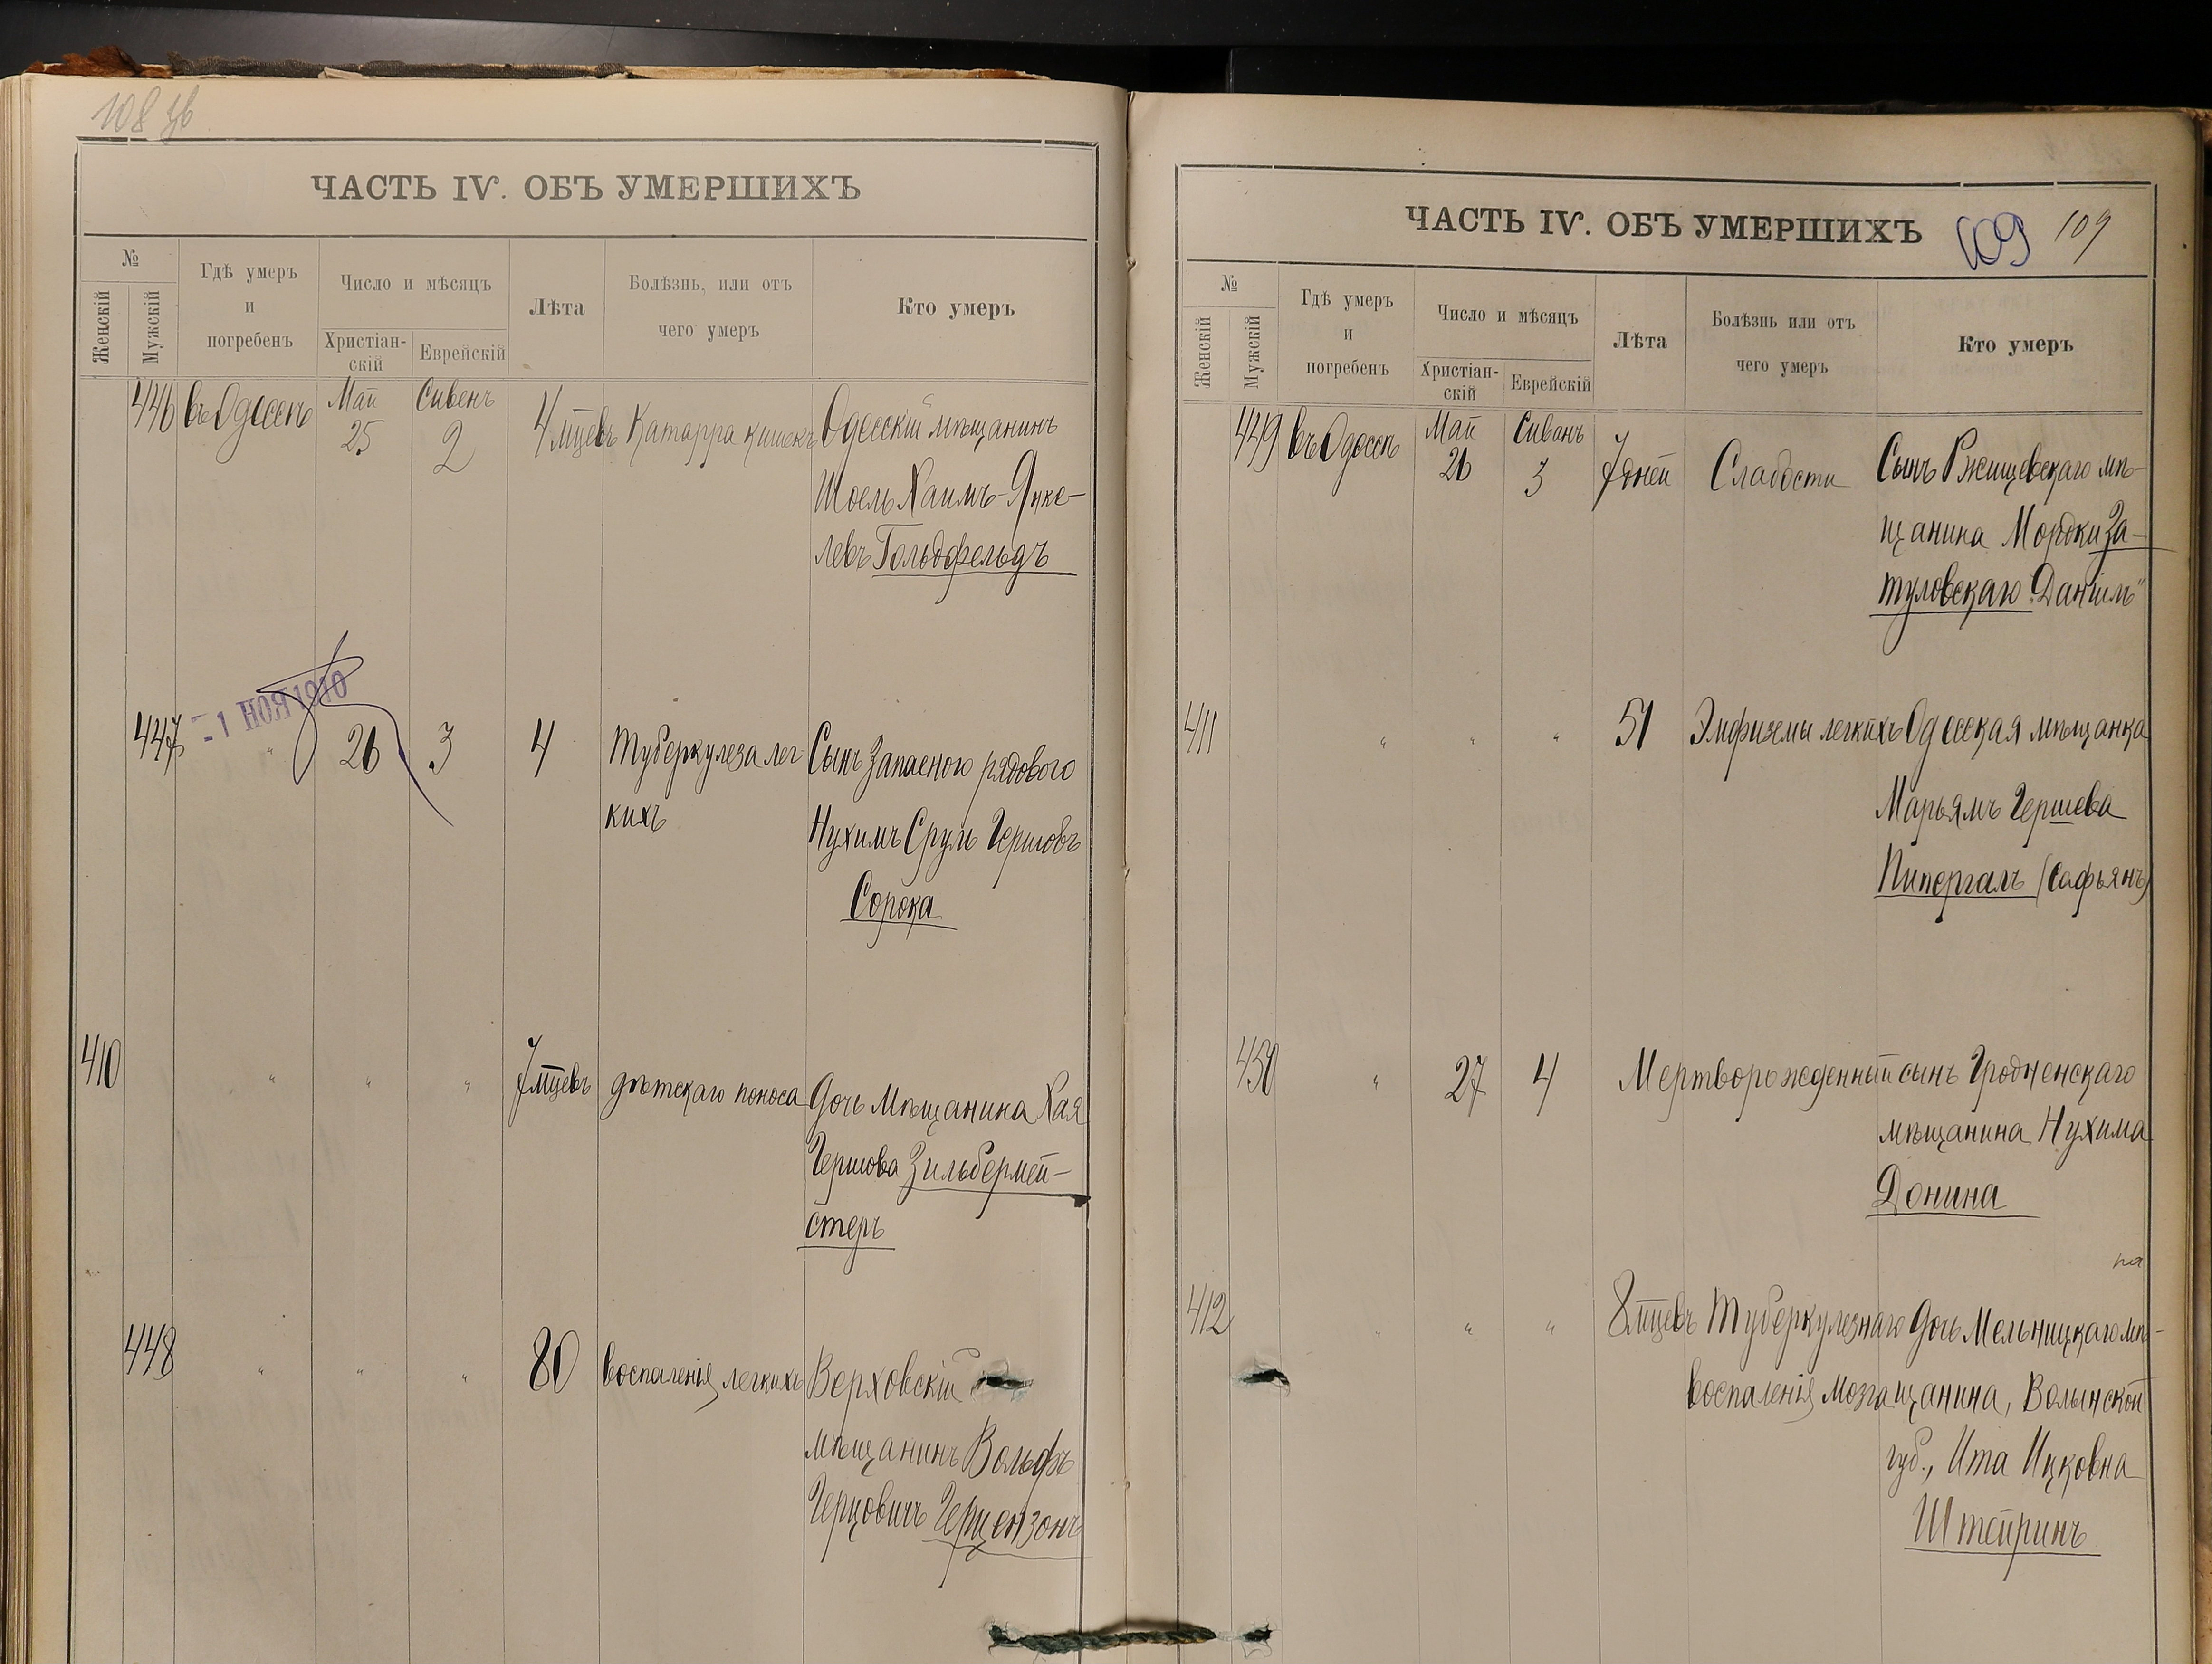 108 об
ЧАСТЬ IV. ОБЪ УМЕРШИХЪ
№
Женскій
Мужскій
Гдѣ умеръ
и
погребенъ
Число и мѣсяцъ
Христіан-
скій
Еврейскій
Лѣта
Болѣзнь, или отъ
чего умеръ
Кто умеръ
446 въ Одессѣ Май 25 Сивенъ 2 4 мцевъ Катарра кишекъ Одесскій мѣщанинъ
Шоель Хаимъ-Янке-
левъ Гольдфельдъ
1 НОЯ 1910
447 " 26 3 4 Туберкулеза лег- Сынъ Запасного рядового
кихъ Нухимъ Сруль Гершовъ
Сорока
410 " " " 7 мцевъ дѣтскаго поноса Дочь Мѣщанина Хая
Гершова Зильбермей-
стеръ
448 " " " 80 воспаленія легкихъ Верховскій
мѣщанинъ Вольфъ
Герцовичъ Герцензонъ
ЧАСТЬ IV. ОБЪ УМЕРШИХЪ 109 109
№
Женскій
Мужскій
Гдѣ умеръ
и
погребенъ
Число и мѣсяцъ
Христіан-
скій
Еврейскій
Лѣта
Болѣзнь или отъ
чего умеръ
Кто умеръ
449 въ Одессѣ Май 26 Сиванъ 3 7 дней Слабости Сынъ Ржищевскаго мѣ-
щанина Мордки За-
туловскаго "Даніилъ"
411 " " " 51 Эмфиземы легкихъ Одесская мѣщанка
Марьямъ Гершева
Пипергалъ (Сафьянъ)
450 " 27 4 Мертворожденный сынъ Гродненскаго
мѣщанина Нухима
Донина
412 " " " 8 мцевъ Туберкулезнаго Дочь Мельницкаго мѣ-
воспаленія мозга щанина, Волынской
губ., Ита Ицковна
Штейринъ